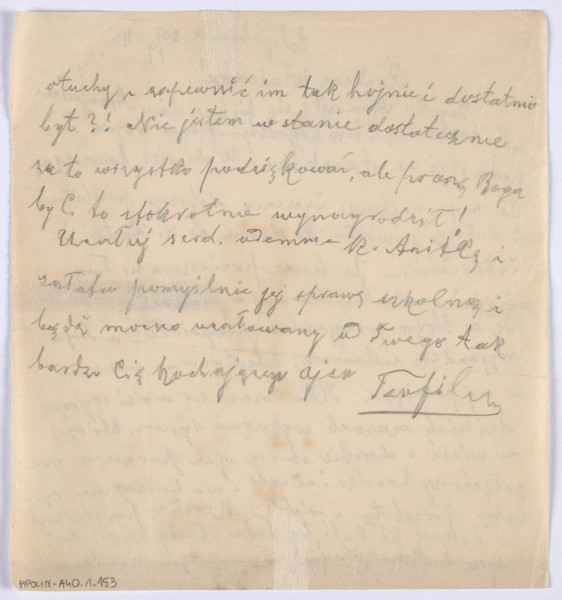 otuchy i zapewnić im tak hojnie i dostatnio
byt?! Nie jestem w stanie dostatecznie
za to wszystko podziękować, ale proszę Boga
by Ci to stokrotnie wynagrodził!
Ucałuj serd. odemnie k. Anitkę i
załatw pomyślnie jej sprawę szkolną i
bądź mocno ucałowany od Twego tak
bardzo Cię kochającego ojca
Teofil
MPOLIN-A40.1.153